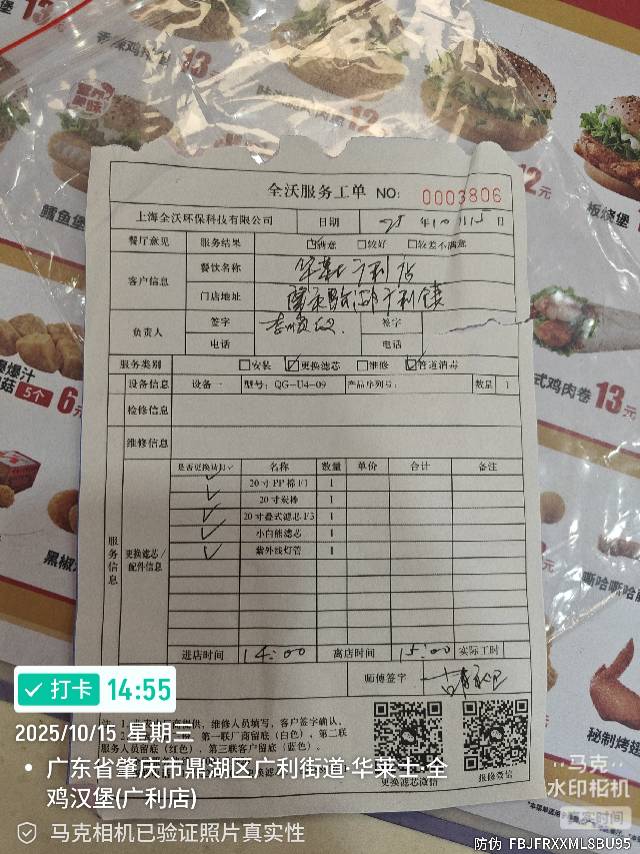 全沃服务工单 NO: 0003806
上海全沃环保科技有限公司 日期 25 年 10 月 15 日
餐厅意见 服务结果 ☑满意 □较好 □较差不满意
客户信息 餐饮名称 华莱士广利店
门店地址 肇庆鼎湖广利镇
负责人 签字 签字
电话 电话
服务类别 □安装 ☑更换滤芯 □维修 ☑管道消毒
设备信息 设备一 型号: QG-U4-09 产品序列号: 数量 1
检修信息
维修信息
服务信息 更换滤芯/配件信息
是否更换请打✓ 名称 数量 单价 合计 备注
✓ 20寸PP棉F1 1
✓ 20寸炭棒 1
✓ 20寸叠式滤芯F3 1
✓ 小白熊滤芯 1
✓ 紫外线灯管 1
进店时间 14:00 离店时间 15:00 实际工时
师傅签字
提供，维修人员填写，客户签字确认。
第一联厂商留底（白色）、第二联
服务人员留底（红色）、第三联客户留底（蓝色）。
更换滤芯微信 报修微信
打卡 14:55
2025/10/15 星期三
广东省肇庆市鼎湖区广利街道·华莱士·全
鸡汉堡(广利店)
马克相机已验证照片真实性
马克
水印相机
真实时间
防伪 FBJFRXXML8BU95
香辣鸡腿堡
13
12
鳕鱼堡
12元
板烧堡
13
爆汁
5个 6元
式鸡肉卷 13元
黑椒
嘶哈嘶哈
秘制烤翅